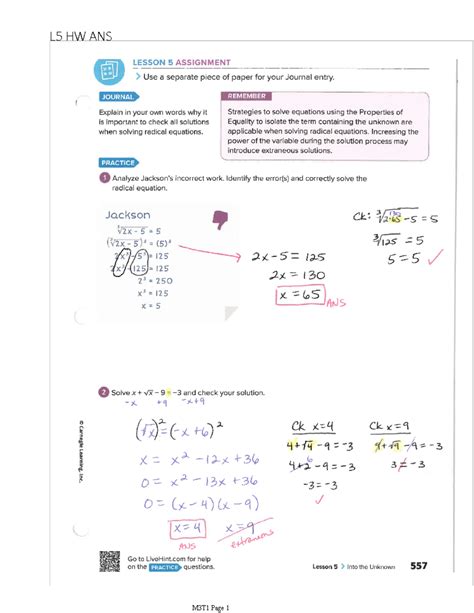 L5 HW ANS
LESSON 5 ASSIGNMENT
> Use a separate piece of paper for your Journal entry.
JOURNAL
Explain in your own words why it
is important to check all solutions
when solving radical equations.
REMEMBER
Strategies to solve equations using the Properties of
Equality to isolate the term containing the unknown are
applicable when solving radical equations. Increasing the
power of the variable during the solution process may
introduce extraneous solutions.
PRACTICE
1 Analyze Jackson's incorrect work. Identify the error(s) and correctly solve the
radical equation.
Jackson
∛2x - 5 = 5
(∛2x - 5)³ = (5)³
2x³ - 5³ = 125
2x³ - 125 = 125
2³ = 250
x³ = 125
x = 5
2x - 5 = 125
2x = 130
x = 65
ANS
Ck: ∛2·65 - 5 = 5
130
∛125 = 5
5 = 5 ✓
2 Solve x + √x - 9 = -3 and check your solution.
-x +9 -x +9
(√x)² = (-x + 6)²
x = x² - 12x + 36
0 = x² - 13x + 36
0 = (x - 4)(x - 9)
x = 4 x = 9
ANS extraneous
Ck x = 4
4 + √4 - 9 = -3
4 + 2 - 9 = -3
6
-3 = -3
✓
Ck x = 9
9 + √9 - 9 = -3
3 ≠ -3
© Carnegie Learning, Inc.
Go to LiveHint.com for help
on the PRACTICE questions.
Lesson 5 > Into the Unknown 557
M3T1 Page 1